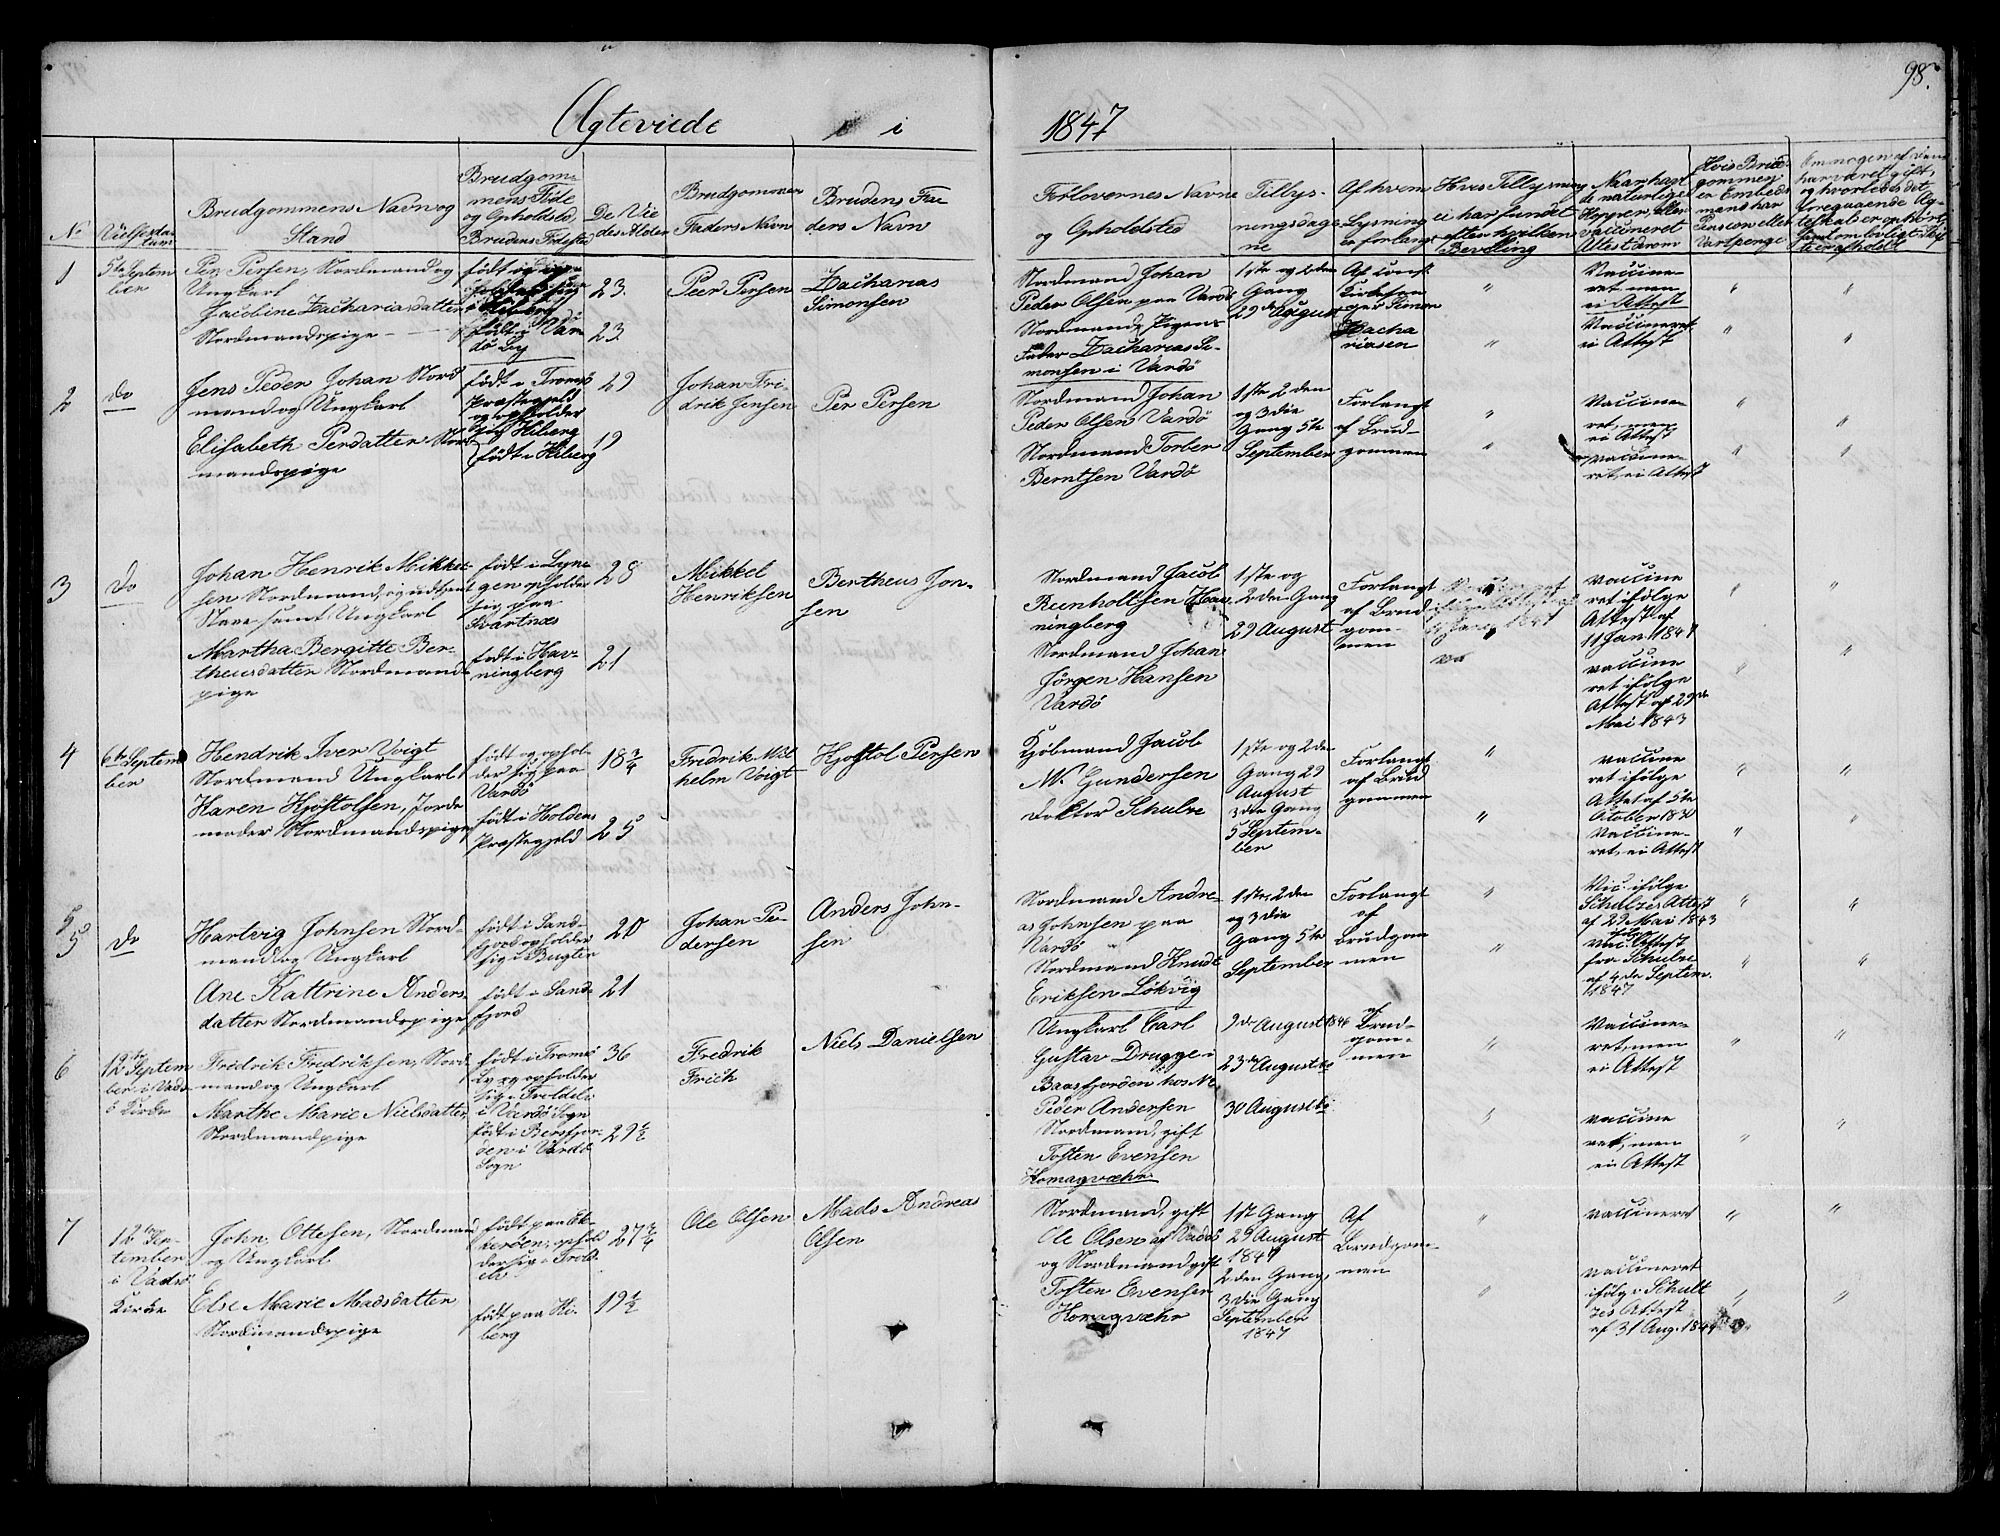 98.
Ægteviede i 1847
No
Vielsesdatum
Brudgommens Navn og
Stand
Brudgom-
mens Føde
og Opholdsted,
Brudens Fødested
De Vie
des Alder
Brudgommens
Faders Navn
Brudens Fa-
ders Navn
Forlovernes Navne
og Opholdsted
Tillys-
ningsdage
ne
Af hvem
Lysning
er forlangt
Hvis Tillysning
ei har fundet
efter hvilken
Bevilling
Naar havt
de naturlige
Kopper, eller
vaccineret
Attest derom
Hvis Brud
gommen
er Embeds
mand har
Pension eller
Vartpenge
Om nogen af dem
har været gift,
og hvorledes det
foregaaende Æg-
teskab er ophørt,
samt om lovligt Skif
te er afholdt
1
5te Septem
ber
Per Persen, Nordmand og
Ungkarl
Jacobine Zachariasdatter
Nordmandspige
født og
født i Var
dö By
23.
23.
Peer Persen
Zacharias
Simonsen
Nordmand Johan
Peder Olsen paa Vardö
Nordmand, Pigens
Fader Zacharias Si-
monsen i Vardö
1ste og 2den
Gang
29de August
Af const
Kirkesan
ger Simon
Zacha
riasen
"
"
Vaccine-
ret men
ei Attest
Vaccineret
ei Attest
"
"
"
"
2
Do
Jens Peder Johan Nord
mand og Ungkarl
Elisabeth Persdatter Nord
mandspige
født i Tromsö
Præstegjeld
og opholder
sig Kiberg
født i Kiberg
29
19
Johan Fri-
drik Jensen
Per Persen
Nordmand Johan
Peder Olsen Vardö
Nordmand Torber
Berntsen Vardö
1ste 2den
og 3die
Gang 5te
September
Forlangt
af Brud-
gommen
"
"
Vaccine-
ret, men
ei Attest
vaccine-
ret, ei Attest
"
"
"
"
3
Do
Johan Henrik Mikkel-
sen Nordmand, og udtjent
Slave samt Ungkarl
Martha Bergitte Ber-
theusdatter Nordmands
pige
født i Lyn
gen opholder
sig paa
Svartnæs
født i Hav-
ningberg
28
21
Mikkel
Henriksen
Bertheus Jon-
sen
Nordmand Jacob
Reenholtsen Hav-
ningberg
Nordmand Johan
Jörgen Hansen
Vardö
1ste og
2den Gang
29 August
Forlangt
af Brud
gom-
men
vaccine
ret ifölge
Attest af
11 Jan. 1847
vaccine
ret ifölge
Attest af 29de
Mai 1843
"
"
"
"
4
6te Septem
ber
Hendrik Iver Voigt
Nordmand Ungkarl
Karen Hjostolsen, Jorde
moder Nordmandspige
født og ophol-
der sig paa
Vardö
født i Holdens
Præstegjeld
18 3/4
25
Fredrik Wil
helm Voigt
Hjostol Persen
Kjöbmand Jacob
M. Gundersen
Doktor Schulze
1ste og 2den
Gang 29
August
3die Gang
5 Septem-
ber
Forlangt
af Brud
gommen
"
"
vaccine
ret ifölge
Attet af 5te
October 1840
Vaccine-
ret, ei Attest
"
"
"
"
5
5
Do
Hartvig Johnsen Nord-
mand og Ungkarl
Ane Kattrine Anders-
datter Nordmandspige
født i Sand-
fjord opholder
sig i Bugten
født i Sand-
fjord
20
21
Johan Pe-
dersen
Anders John-
sen
Nordmand Andre-
as Johnsen paa
Vardö
Nordmand Knudt
Eriksen Lökvig
1ste 2den
og 3die
Gang 5te
September
Forlangt
af
Brudgom
men
"
"
Vic. ifölge
Schulzes Attest
af 29 Mai 1843
vac. Attest
fra Schulze
af 4de Septem.
1847
"
"
"
"
6
12te Septem
ber i Vads
ö Kirke
Fredrik Fredriksen, Nord-
mand og Ungkarl
Marthe Marie Nielsdatter
Nordmandpige
født i Tromsö
By og opholder
sig i Troldele
i Vardö Sogn
født i Bersfjor-
den i Vardö
Sogn
36
29 1/2
Fredrik
Frich
Niels Danielsen
Ungkarl Carl
Gustav Drugge i
Baasfjorden hos N.
Peder Andersen
Nordmand, gift
Tosten Evensen
Komagvæhr
9de August 1846
23de August do
30 August do
af
Brud-
gom-
men
"
"
Vaccine-
ret, men
ei Attest
vaccine
ret, men
ei Attest
"
"
"
"
7
12te Sep-
tember
i Vadsö
Kirke
John Ottesen, Nordmand
og Ungkarl
Else Marie Madsdatter
Nordmandspige
født paa Ek-
keröen, ophol
der sig i Trold
ele
født paa Ki-
berg
27 3/4
19 1/2
Ole Olsen
Mads Andreas
Olsen
Nordmand, gift
Ole Olsen af Vadsö
og Nordmand gift
Tosten Evensen
Komagvæhr
1st Gang
29 August
1847
2den Gang,
3die Gang
September
1847
Af
Brudgom-
men
"
"
vaccineret
vaccineret
ifölge Schult
zes Attest
af 31 Aug. 1844
"
"
"
"